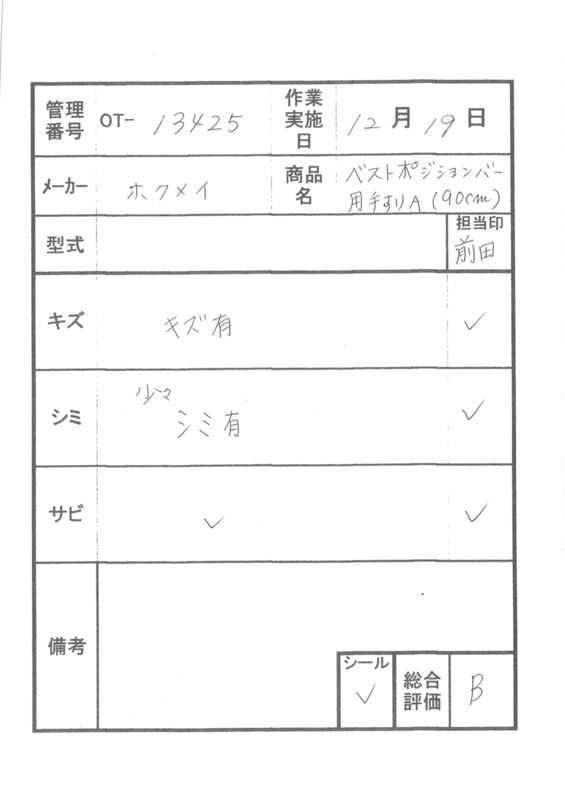 管理番号 OT- 13425 作業実施日 12月19日
メーカー ホクメイ 商品名 ベストポジションバー
用手すりA(90cm)
型式 担当印
前田
キズ キズ有 ✓
少々
シミ シミ有 ✓
サビ ✓ ✓
備考
シール 総合評価 B
✓